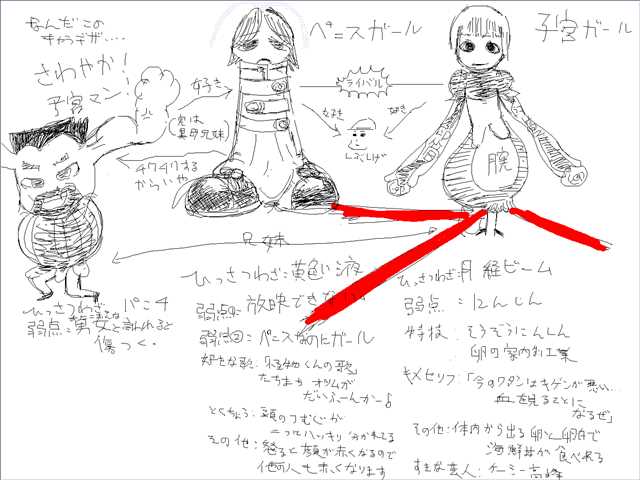 なんだこの
キャラデザ....
さわやか!
子宮マン!
好き
実は
異母兄妹
チクチクする
からいや
ペニスガール
ライバル
好き
好き
しぶしげ
子宮ガール
腕
兄妹
ひっさつわざ:パニチ
弱点:男女と言われると
傷つく.
ひっさつわざ:黄色い液
弱点:放映できない
弱点②:ペニスなのにガール
好きな歌:「怪物くんの歌」
たちまち オツムが
だいふーんかー♪
とくちょう:頭のつむじが
二つにハッキリ分かれてる
その他:怒ると顔が赤くなるので
他の人も赤くなります
ひっさつわざ:月経ビーム
弱点:にんじん
特技:そうぞうにんしん
卵の室内加工業
キメセリフ:「今のワタシはキゲンが悪い...
血を見ることに
なるぜ」
その他:体内から出る卵と卵白で
海鮮丼が食べれる
すきな芸人:チーミー高峰